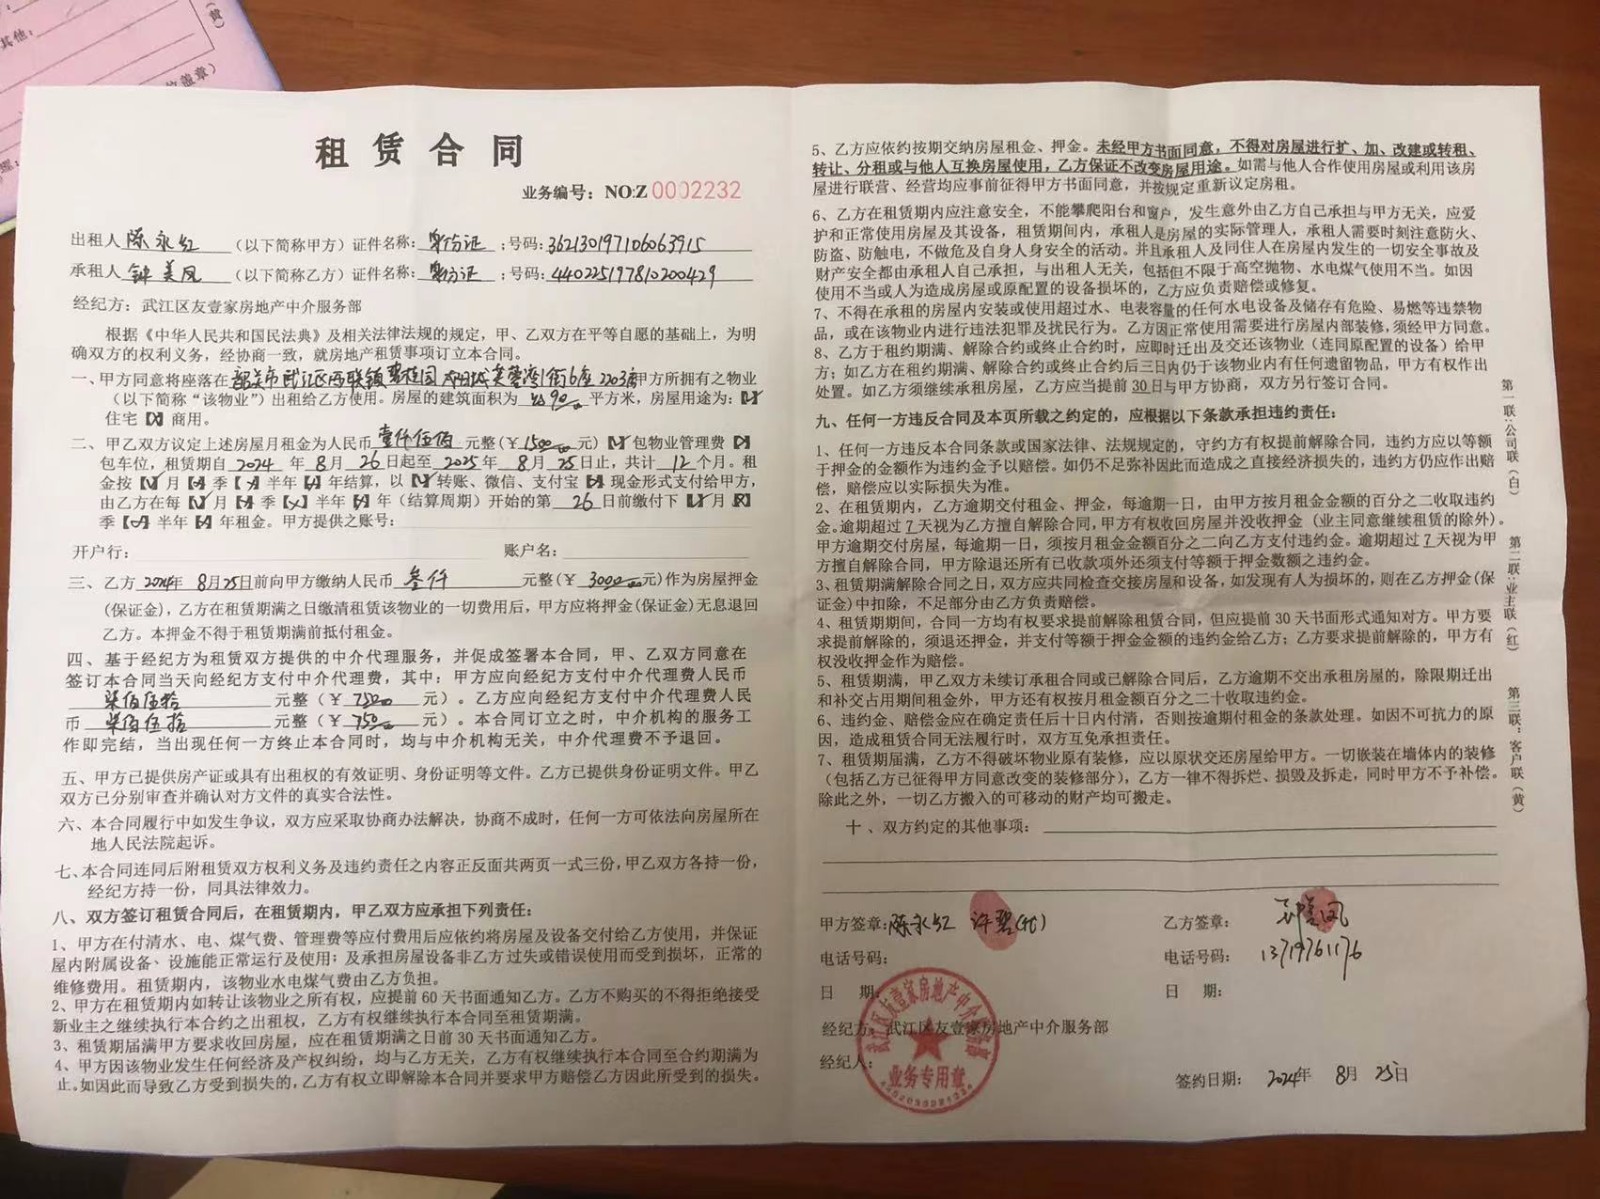 其他:
(黄)
位盖章)
租赁合同
业务编号：NO:Z 0002232
出租人 陈永红 （以下简称甲方）证件名称：身份证 ；号码：362130197106063915
承租人 钟美凤 （以下简称乙方）证件名称：身份证 ；号码：440225197810200429
经纪方：武江区友壹家房地产中介服务部
根据《中华人民共和国民法典》及相关法律法规的规定，甲、乙双方在平等自愿的基础上，为明
确双方的权利义务，经协商一致，就房地产租赁事项订立本合同。
一、甲方同意将座落在 韶关市武江区西联镇碧桂园太阳城芙蓉湾1街6座2203房 甲方所拥有之物业
（以下简称“该物业”）出租给乙方使用。房屋的建筑面积为 90 平方米，房屋用途为：【✓】
住宅【✗】商用。
二、甲乙双方议定上述房屋月租金为人民币 壹仟伍佰 元整（￥1500元）【✓】包物业管理费【✗】
包车位，租赁期自 2024 年 8 月 26 日起至 2025 年 8 月 25 日止，共计 12 个月。租
金按【✓】月【✗】季【✗】半年【✗】年结算，以【✓】转账、微信、支付宝【✗】现金形式支付给甲方，
由乙方在每【✓】月【✗】季【✗】半年【✗】年（结算周期）开始的第 26 日前缴付下【✓】月【✗】
季【✗】半年【✗】年租金。甲方提供之账号：
开户行： 账户名：
三、乙方 2024年 8月25日前向甲方缴纳人民币 叁仟 元整（￥ 3000 元）作为房屋押金
（保证金），乙方在租赁期满之日缴清租赁该物业的一切费用后，甲方应将押金（保证金）无息退回
乙方。本押金不得于租赁期满前抵付租金。
四、基于经纪方为租赁双方提供的中介代理服务，并促成签署本合同，甲、乙双方同意在
签订本合同当天向经纪方支付中介代理费，其中：甲方应向经纪方支付中介代理费人民币
柒佰伍拾 元整（￥ 750 元）。乙方应向经纪方支付中介代理费人民
币 柒佰伍拾 元整（￥ 750 元）。本合同订立之时，中介机构的服务工
作即完结，当出现任何一方终止本合同时，均与中介机构无关，中介代理费不予退回。
五、甲方已提供房产证或具有出租权的有效证明、身份证明等文件。乙方已提供身份证明文件。甲乙
双方已分别审查并确认对方文件的真实合法性。
六、本合同履行中如发生争议，双方应采取协商办法解决，协商不成时，任何一方可依法向房屋所在
地人民法院起诉。
七、本合同连同后附租赁双方权利义务及违约责任之内容正反面共两页一式三份，甲乙双方各持一份，
经纪方持一份，同具法律效力。
八、双方签订租赁合同后，在租赁期内，甲乙双方应承担下列责任：
1、甲方在付清水、电、煤气费、管理费等应付费用后应依约将房屋及设备交付给乙方使用，并保证
屋内附属设备、设施能正常运行及使用；及承担房屋设备非乙方过失或错误使用而受到损坏，正常的
维修费用。租赁期内，该物业水电煤气费由乙方负担。
2、甲方在租赁期内如转让该物业之所有权，应提前60天书面通知乙方。乙方不购买的不得拒绝接受
新业主之继续执行本合约之出租权，乙方有权继续执行本合同至租赁期满。
3、租赁期届满甲方要求收回房屋，应在租赁期满之日前30天书面通知乙方。
4、甲方因该物业发生任何经济及产权纠纷，均与乙方无关，乙方有权继续执行本合同至合约期满为
止。如因此而导致乙方受到损失的，乙方有权立即解除本合同并要求甲方赔偿乙方因此所受到的损失。
5、乙方应依约按期交纳房屋租金、押金。未经甲方书面同意，不得对房屋进行扩、加、改建或转租、
转让、分租或与他人互换房屋使用，乙方保证不改变房屋用途。如需与他人合作使用房屋或利用该房
屋进行联营、经营均应事前征得甲方书面同意，并按规定重新议定房租。
6、乙方在租赁期内应注意安全，不能攀爬阳台和窗户，发生意外由乙方自己承担与甲方无关，应爱
护和正常使用房屋及其设备，租赁期间内，承租人是房屋的实际管理人，承租人需要时刻注意防火、
防盗、防触电，不做危及自身人身安全的活动。并且承租人及同住人在房屋内发生的一切安全事故及
财产安全都由承租人自己承担，与出租人无关，包括但不限于高空抛物、水电煤气使用不当。如因
使用不当或人为造成房屋或原配置的设备损坏的，乙方应负责赔偿或修复。
7、不得在承租的房屋内安装或使用超过水、电表容量的任何水电设备及储存有危险、易燃等违禁物
品，或在该物业内进行违法犯罪及扰民行为。乙方因正常使用需要进行房屋内部装修，须经甲方同意。
8、乙方于租约期满、解除合约或终止合约时，应即时迁出及交还该物业（连同原配置的设备）给甲
方；如乙方在租约期满、解除合约或终止合约后三日内仍于该物业内有任何遗留物品，甲方有权作出
处置。如乙方须继续承租房屋，乙方应当提前 30 日与甲方协商，双方另行签订合同。
九、任何一方违反合同及本页所载之约定的，应根据以下条款承担违约责任：
1、任何一方违反本合同条款或国家法律、法规规定的，守约方有权提前解除合同，违约方应以等额
于押金的金额作为违约金予以赔偿。如仍不足弥补因此而造成之直接经济损失的，违约方仍应作出赔
偿，赔偿应以实际损失为准。
2、在租赁期内，乙方逾期交付租金、押金，每逾期一日，由甲方按月租金金额的百分之二收取违约
金。逾期超过 7 天视为乙方擅自解除合同，甲方有权收回房屋并没收押金（业主同意继续租赁的除外）。
甲方逾期交付房屋，每逾期一日，须按月租金金额百分之二向乙方支付违约金。逾期超过 7 天视为甲
方擅自解除合同，甲方除退还所有已收款项外还须支付等额于押金数额之违约金。
3、租赁期满解除合同之日，双方应共同检查交接房屋和设备，如发现有人为损坏的，则在乙方押金（保
证金）中扣除，不足部分由乙方负责赔偿。
4、租赁期期间，合同一方均有权要求提前解除租赁合同，但应提前30天书面形式通知对方。甲方要
求提前解除的，须退还押金，并支付等额于押金金额的违约金给乙方；乙方要求提前解除的，甲方有
权没收押金作为赔偿。
5、租赁期满，甲乙双方未续订承租合同或已解除合同后，乙方逾期不交出承租房屋的，除限期迁出
和补交占用期间租金外，甲方还有权按月租金额百分之二十收取违约金。
6、违约金、赔偿金应在确定责任后十日内付清，否则按逾期付租金的条款处理。如因不可抗力的原
因，造成租赁合同无法履行时，双方互免承担责任。
7、租赁期届满，乙方不得破坏物业原有装修，应以原状交还房屋给甲方。一切嵌装在墙体内的装修
（包括乙方已征得甲方同意改变的装修部分），乙方一律不得拆烂、损毁及拆走，同时甲方不予补偿。
除此之外，一切乙方搬入的可移动的财产均可搬走。
十、双方约定的其他事项：
甲方签章：陈永红 许碧(代) 乙方签章：钟美凤
电话号码： 电话号码：13719761176
日 期： 日 期：
经纪方：武江区友壹家房地产中介服务部
经纪人：
签约日期：2024年 8月 25日
武江区友壹家房地产中介服务部
业务专用章
第一联：公司联（白） 第二联：业主联（红） 第三联：客户联（黄）